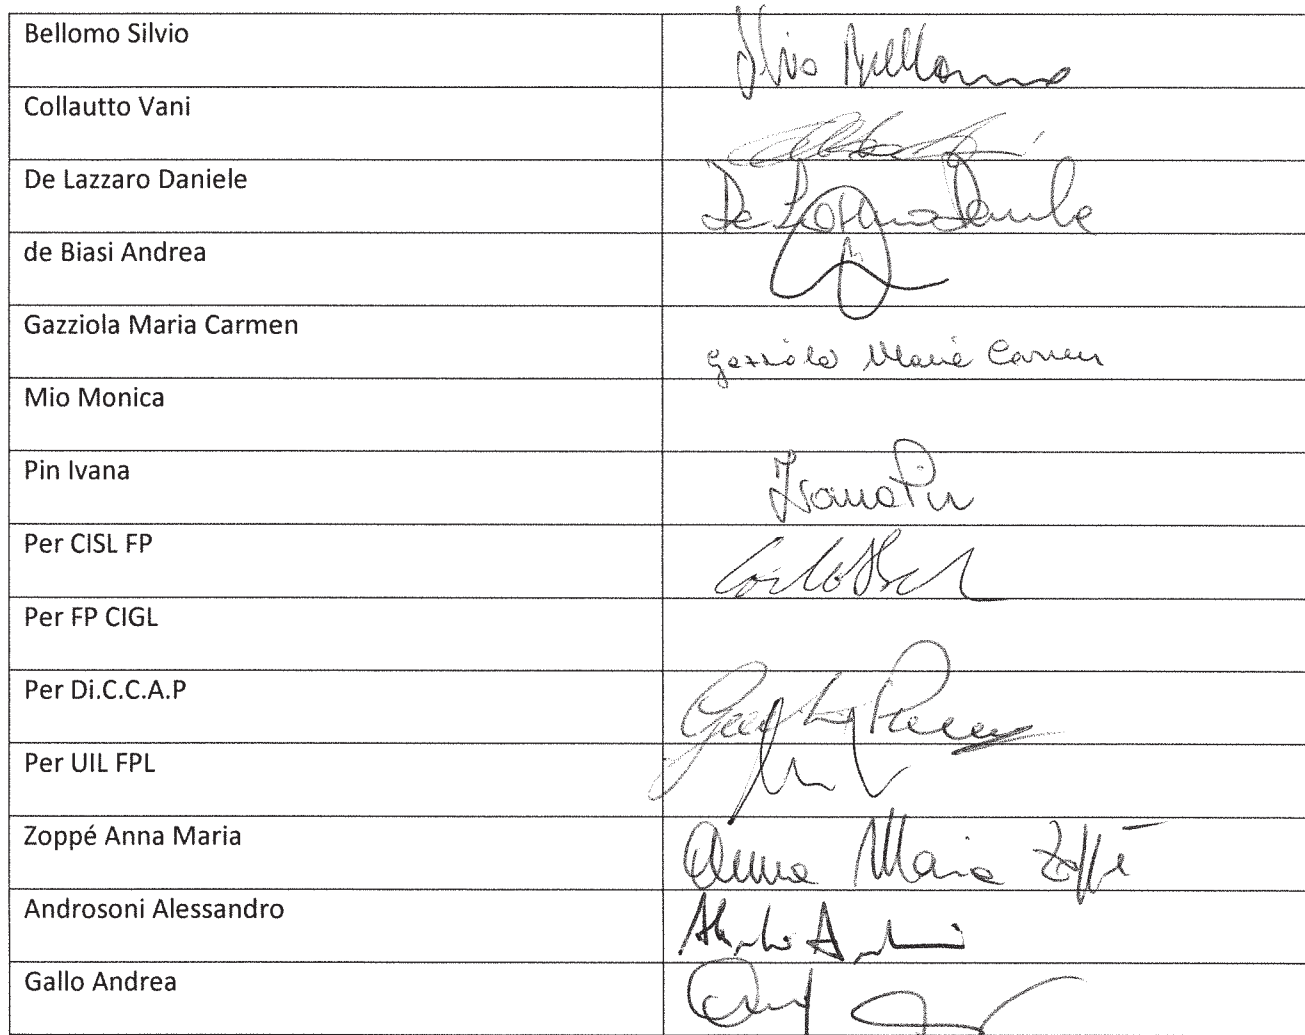 Bellomo Silvio Silvio Bellomo
Collautto Vani
De Lazzaro Daniele De Lazzaro Daniele
de Biasi Andrea
Gazziola Maria Carmen Gazziola Maria Carmen
Mio Monica
Pin Ivana Ivana Pin
Per CISL FP
Per FP CIGL
Per Di.C.C.A.P
Per UIL FPL
Zoppé Anna Maria Anna Maria Zoppé
Androsoni Alessandro
Gallo Andrea